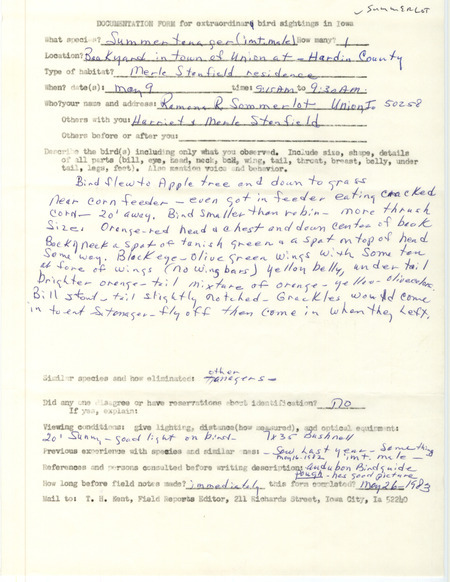 Summerlot
DOCUMENTATION FORM for extraordinary bird sightings in Iowa
What species? Summer tanager (imt. male) How many? 1
Location? Backyard in town of Union at - Hardin County
Type of habitat? Merle Stenfield residence
When? date(s): may 9 time: 9:15 AM to 9:30 AM.
Who? your name and address: Ramona R. Sommerlot Union Ia 50258
Others with you: Harriet & Merle Stenfield
Others before or after you:
Describe the bird(s) including only what you observed. Include size, shape, details
of all parts (bill, eye, head, neck, back, wing, tail, throat, breast, belly, under
tail, legs, feet). Also mention voice and behavior.
Bird flew to Apple tree and down to grass
near corn feeder - even got in feeder eating cracked
corn - 20' away. Bird smaller than robin - more thrush
size. Orange-red head & chest and down center of back
Back of neck a spot of tanish green & a spot on top of head
same way. Black eye - Olive green wings with some tan
at fore of wings (no wing bars) yellow belly, under tail
brighter orange - tail mixture of orange - yellow - olive color.
Bill stout - tail slightly notched - Grackles would come
in to eat & tanager - fly off then come in when they left.
Similar species and how eliminated: other tanagers -
Did any one disagree or have reservations about identification? No
If yes, explain:
Viewing conditions: give lighting, distance(how measured), and optical equipment:
20' Sunny - good light on bird - 7x35 Bushnell
Previous experience with species and similar ones: - Saw last year - Something
may 16-1982 imt. male -
References and persons consulted before writing description: Audubon Bird guide
- has good picture
How long before field notes made? immediately this form completed? May 26 - 1983
Mail to: T. H. Kent, Field Reports Editor, 211 Richards Street, Iowa City, Ia 52240